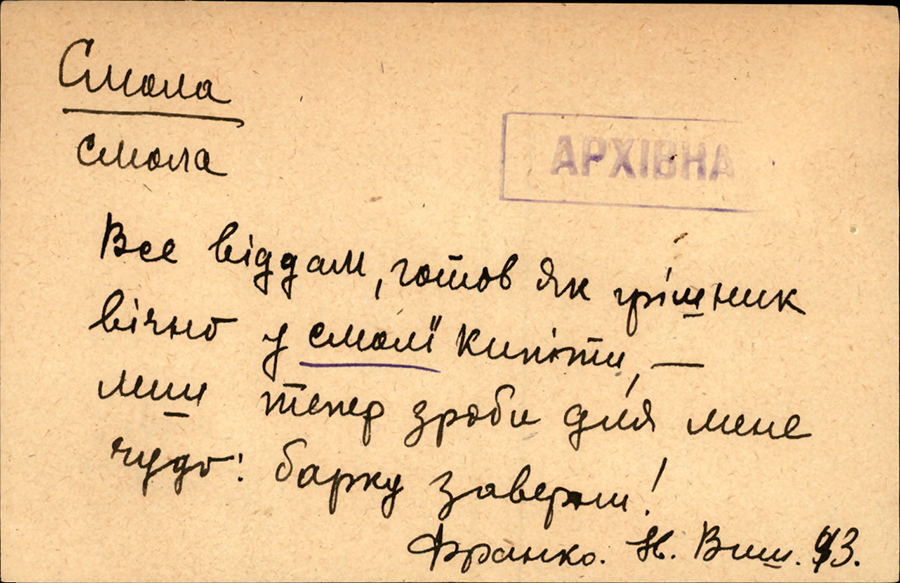 Смола
АРХІВНА
смола
Все віддам, готов як грішник
вічно у смолї кипіти, —
лиш тепер зроби для мене
чудо: барку заверни!
Франко. Ів. Виш. 93.